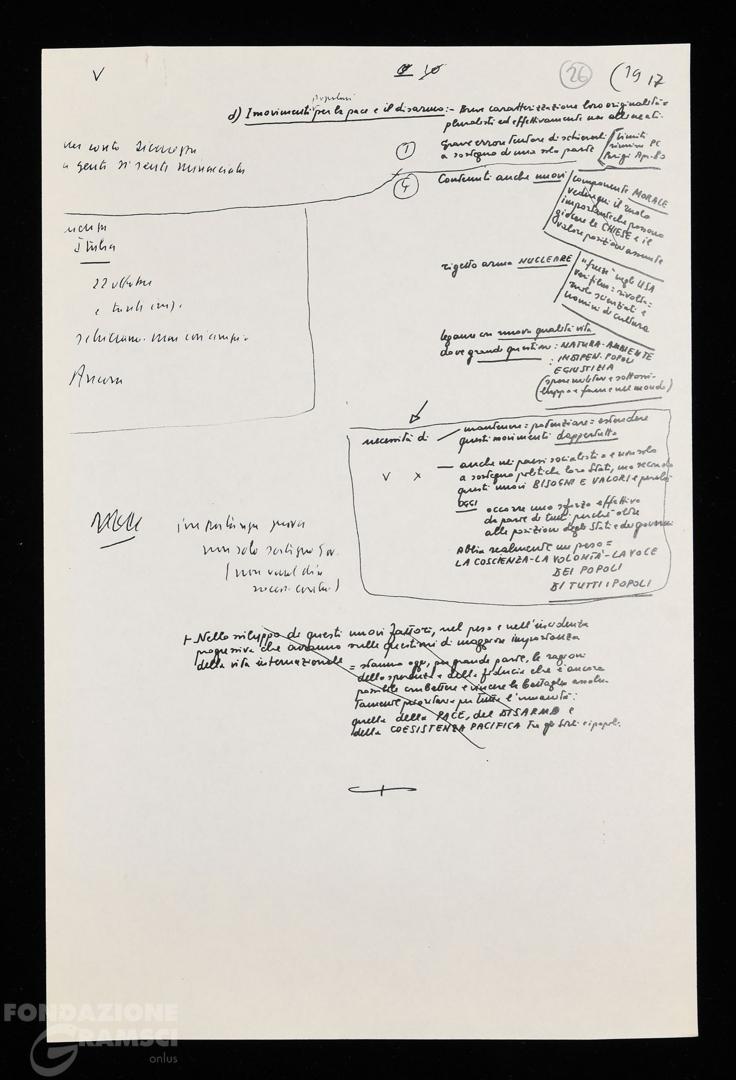 V
26
19 17
popolari
d) I movimenti per la pace e il disarmo: - Breve caratterizzazione loro originalità =
pluralisti ed effettivamente non allineati.
1
Grave errore tentare di schierarli
a sostegno di una sola parte
limiti PC
riunione
Parigi Apr. 80
a gente si sente minacciata
4
Contenuti anche nuovi
componente MORALE
vedi qui il ruolo
importante che possono
giocare le CHIESE e il
valore posizioni assunte
rigetto arma NUCLEARE
"freeze" negli USA
vari film = rivolta =
ruolo scienziati e
uomini di cultura
legame con nuova qualità vita
dove grandi questioni: NATURA - AMBIENTE
: INDIPEN. POPOLI
E GIUSTIZIA
(spese militari e sottosvi-
luppo e fame nel mondo)
22 ottobre
e tante
Ancora
necessità di
mantenere = potenziare = estendere
questi movimenti dappertutto
V X
— anche nei paesi socialisti = e non solo
a sostegno politiche loro Stati, ma secondo
questi nuovi BISOGNI E VALORI e perché
OGGI
occorre uno sforzo effettivo
da parte di tutti perché oltre
alle posizioni degli Stati e dei governi
abbia realmente un peso =
LA COSCIENZA - LA VOLONTÀ - LA VOCE
DEI POPOLI
DI TUTTI I POPOLI
importanza nuova
non solo sostegno gov.
(non vuol dire
+ Nello sviluppo di questi nuovi fattori, nel peso e nell'incidenza
progressiva che avranno sulle questioni di maggiore importanza
della vita internazionale = stanno oggi, per grande parte, le ragioni
della speranza e della fiducia che è ancora
possibile combattere e vincere la battaglia assolu-
tamente prioritaria per tutta l'umanità:
quella della PACE, del DISARMO e
della COESISTENZA PACIFICA tra gli Stati e i popoli.
FONDAZIONE
GRAMSCI
onlus